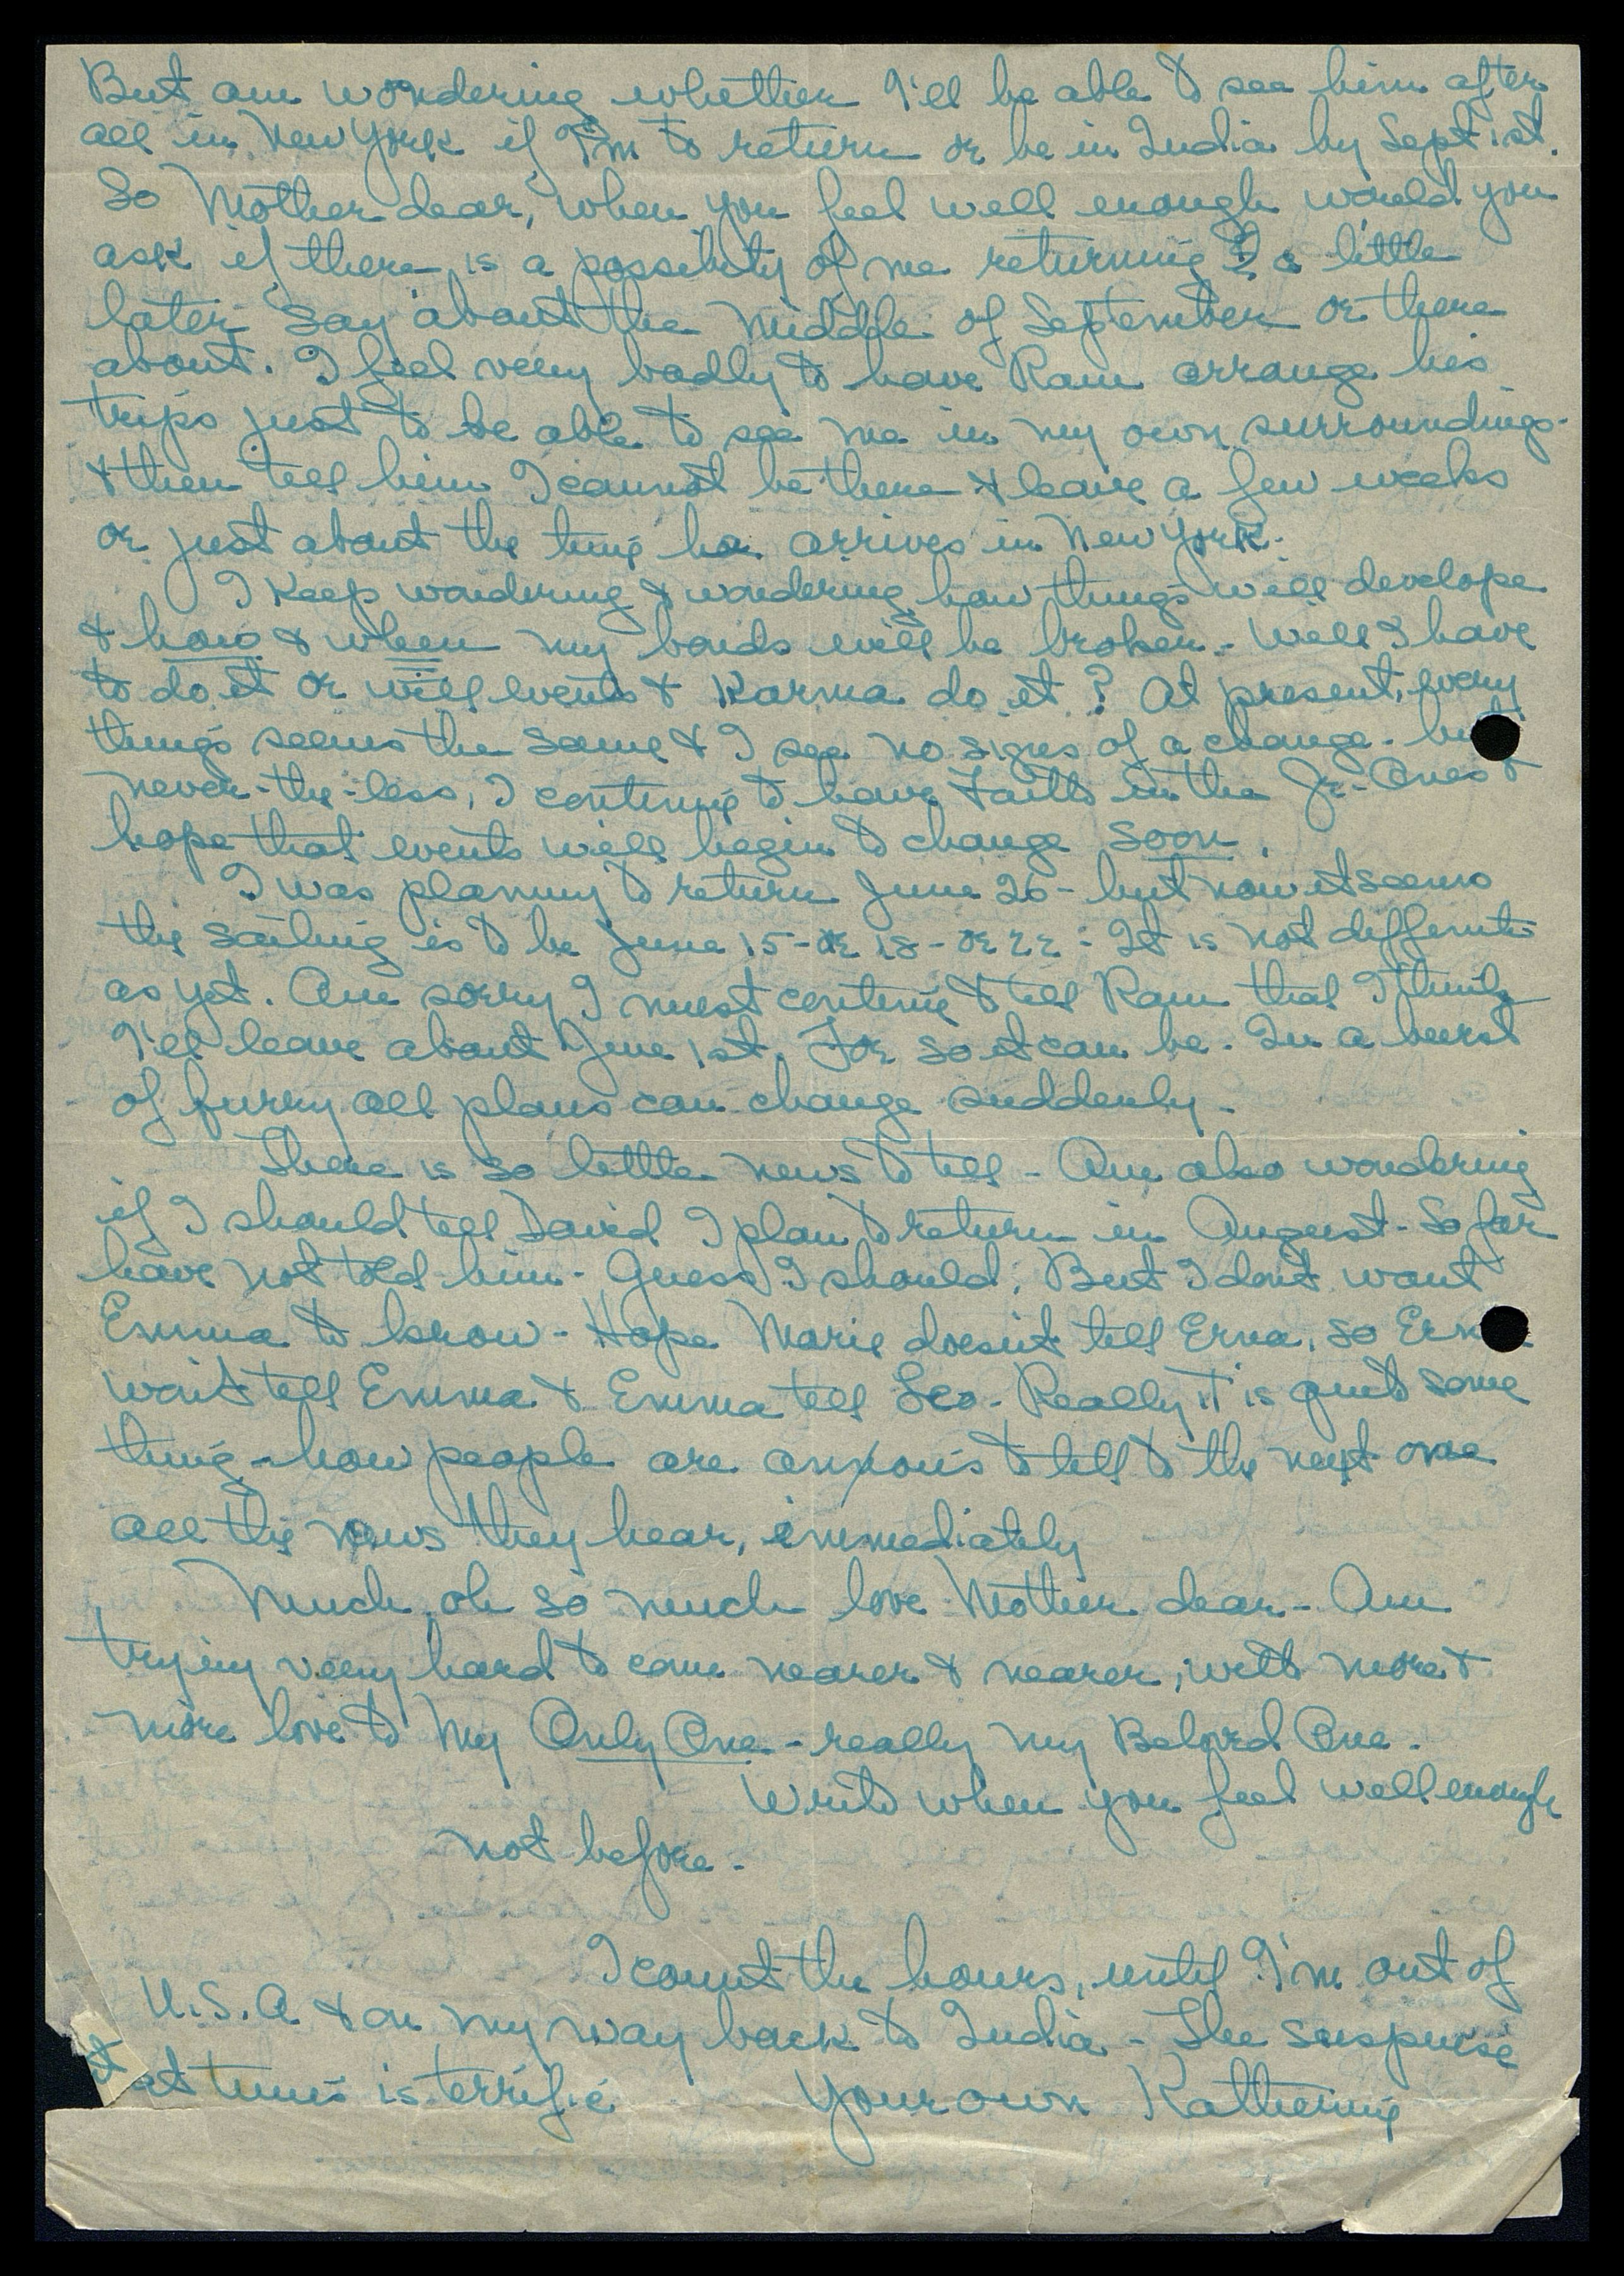 But am wondering whether I'll be able to see him after
all in New York if I'm to return or be in India by Sept 1st.
So Mother dear, when you feel well enough would you
ask if there is a possibility of me returning a little
later say about the middle of September or there
about. I feel very badly to have Ram arrange his
trips just to be able to see me in my own surroundings-
& then tell him I cannot be there & leave a few weeks
or just about the time he arrives in New York.
I keep wondering & wondering how things will develope
& how & when my bonds will be broken - Will I have
to do it or will events & Karma do it? At present, every
things seems the same & I see no signs of a change - but
never-the-less, I continue to have Faith in the Gr. Ones &
hope that events will begin to change soon.
I was planning to return June 26 - but now it seems
the sailing is to be June 15 - or 18 - or 22 - It is not diffenite
as yet. Am sorry I must continue to tell Ram that I think
I'll leave about June 1st. For so it can be. In a burst
of furry all plans can change suddenly -
There is so little news to tell - Am also wondering
if I should tell David I plan to return in August - So far
have not told him - Guess I should. But I dont want
Emma to know - Hope Marie doesn't tell Erna, so Erna
wont tell Emma & Emma tell Leo - Really it is quite some
thing - how people are anxious to tell to the next one
all the news they hear, immediately
Much, oh so much love Mother dear - Am
trying very hard to come nearer & nearer, with more &
more love to My Only One - really my Beloved One.
Write when you feel well enough
not before -
I count the hours, until I'm out of
U.S.A & on my way back to India - The suspense
at times is terrific
Your own Katherine